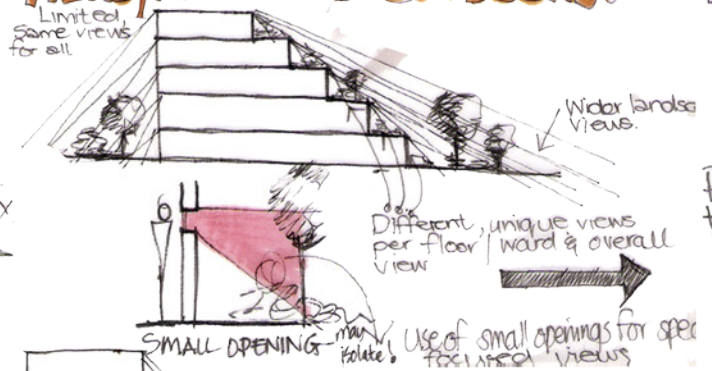 Limited,
same views
for all
Wider landsc
views.
Different, unique views
per floor / ward & overall
view
SMALL OPENING
may
isolate!
Use of small openings for spec
focused views